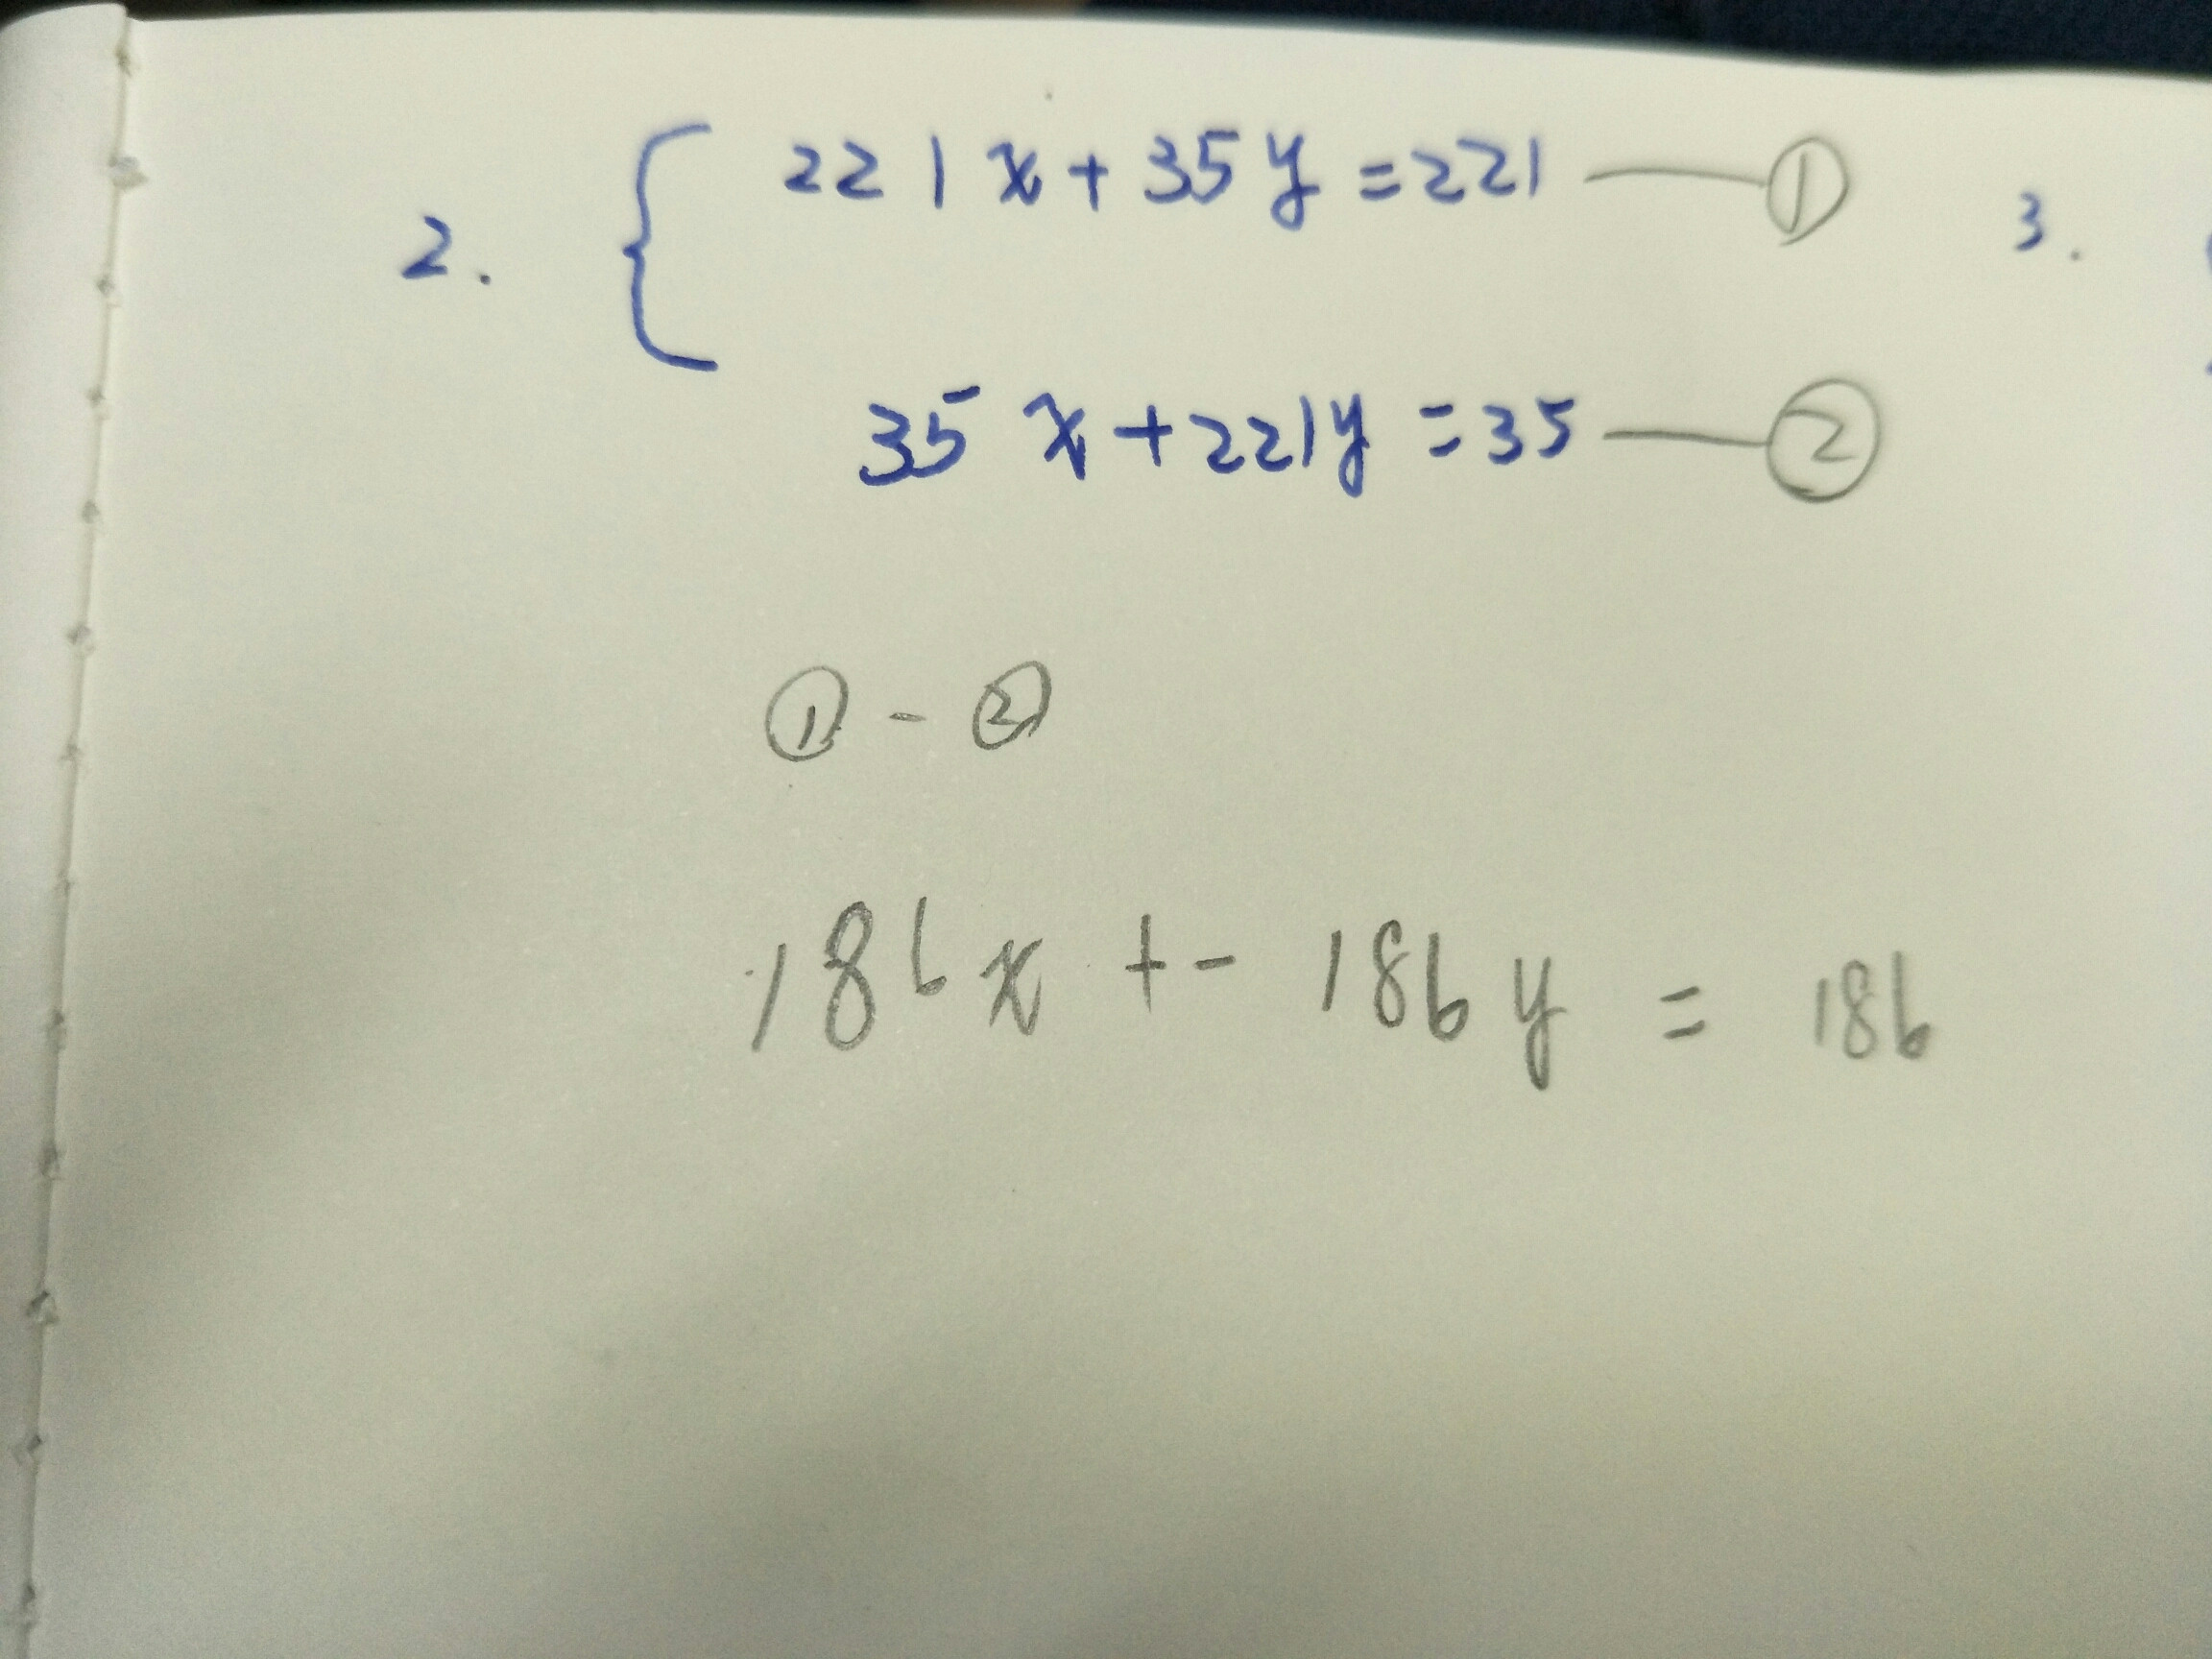 2. { 221x+35y=221 — ① 3.
35x+221y=35 — ②
① - ②
186x +- 186y = 186